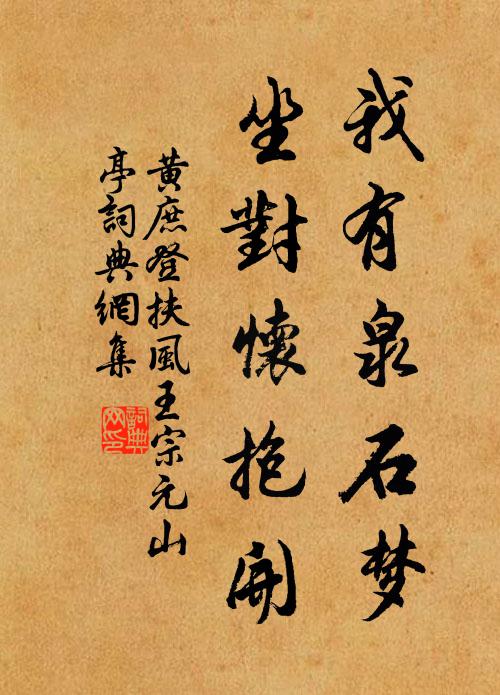 我有泉石梦
坐對懷抱開
黃庶登扶風王宗元山
亭詞典網集
詞典网印